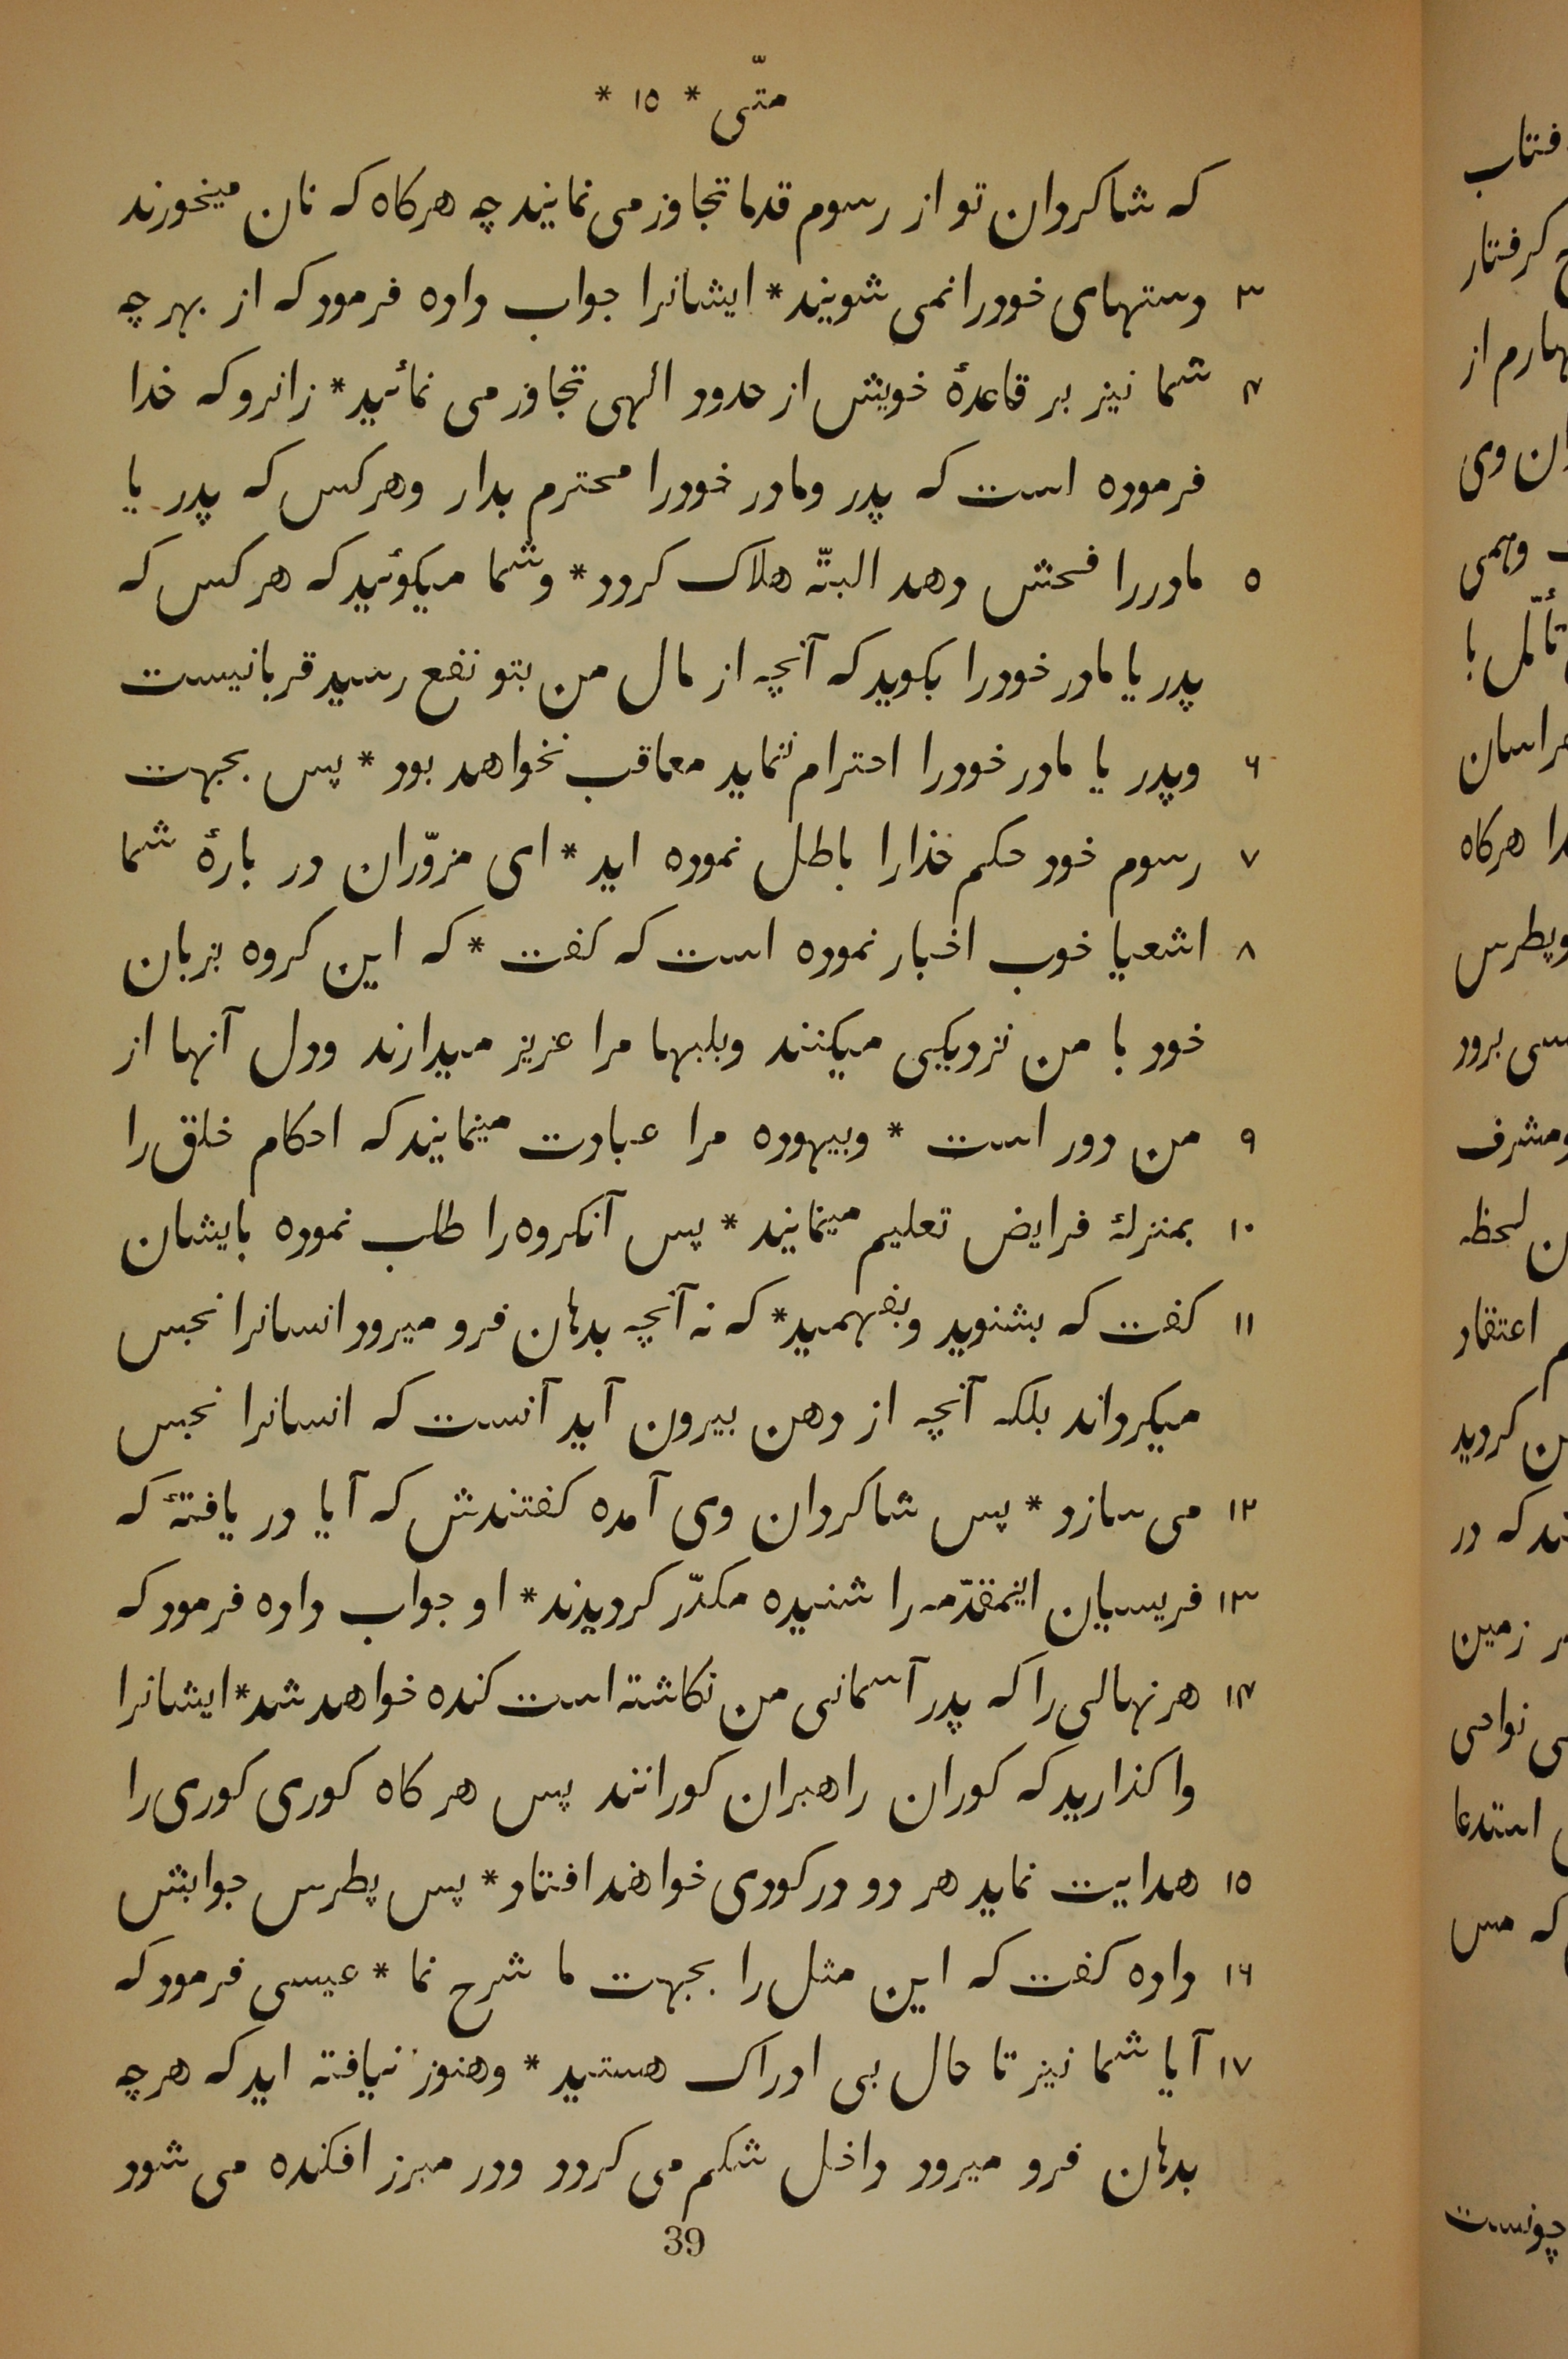 متّی * ١٥ *
که شاکردان تو از رسوم قدما تجاوز می نمایند چه هرکاه که نان میخورند
٣ دستهای خودرا نمی شویند * ایشانرا جواب داده فرمود که از بهر چه
۴ شما نیز بر قاعدهٔ خویش از حدود الهی تجاوز می نمائید * زانرو که خدا
فرموده است که پدر ومادر خودرا محترم بدار وهرکس که پدر یا
٥ مادررا فحش دهد البتّه هلاک کردد * وشما میکوئید که هر کس که
پدر یا مادر خودرا بکوید که آنچه از مال من بتو نفع رسید قربانیست
٦ وپدر یا مادر خودرا احترام ننماید معاقب نخواهد بود * پس بجهت
٧ رسوم خود حکم خدارا باطل نموده اید * ای مزوّران در بارهٔ شما
٨ اشعیا خوب اخبار نموده است که کفت * که این کروه بزبان
خود با من نزدیکی میکنند وبلبها مرا عزیز میدارند ودل آنها از
٩ من دور است * وبیهوده مرا عبادت مینمایند که احکام خلق را
١٠ بمنزلهٔ فرایض تعلیم مینمایند * پس آنکروه را طلب نموده بایشان
١١ کفت که بشنوید وبفهمید * که نه آنچه بدهان فرو میرود انسانرا نجس
میکرداند بلکه آنچه از دهن بیرون آید آنست که انسانرا نجس
١٢ می سازد * پس شاکردان وی آمده کفتندش که آیا در یافتهٔ که
١٣ فریسیان اینمقدّمه را شنیده مکدّر کردیدند * او جواب داده فرمود که
١۴ هر نهالی را که پدر آسمانی من نکاشته است کنده خواهد شد * ایشانرا
وا کذارید که کوران راهبران کورانند پس هر کاه کوری کوری را
١٥ هدایت نماید هر دو در کودی خواهند افتاد * پس پطرس جوابش
١٦ داده کفت که این مثل را بجهت ما شرح نما * عیسی فرمود که
١٧ آیا شما نیز تا حال بی ادراک هستید * وهنوز نیافته اید که هر چه
بدهان فرو میرود داخل شکم می کردد ودر مبرز افکنده می شود
39
کرفتار
هارم از
وی
وهمی
هرکاه
وپطرس
برود
ومشرف
لحظه
اعتقاد
کردید
که در
زمین
نواحی
استدعا
که مس
چونست